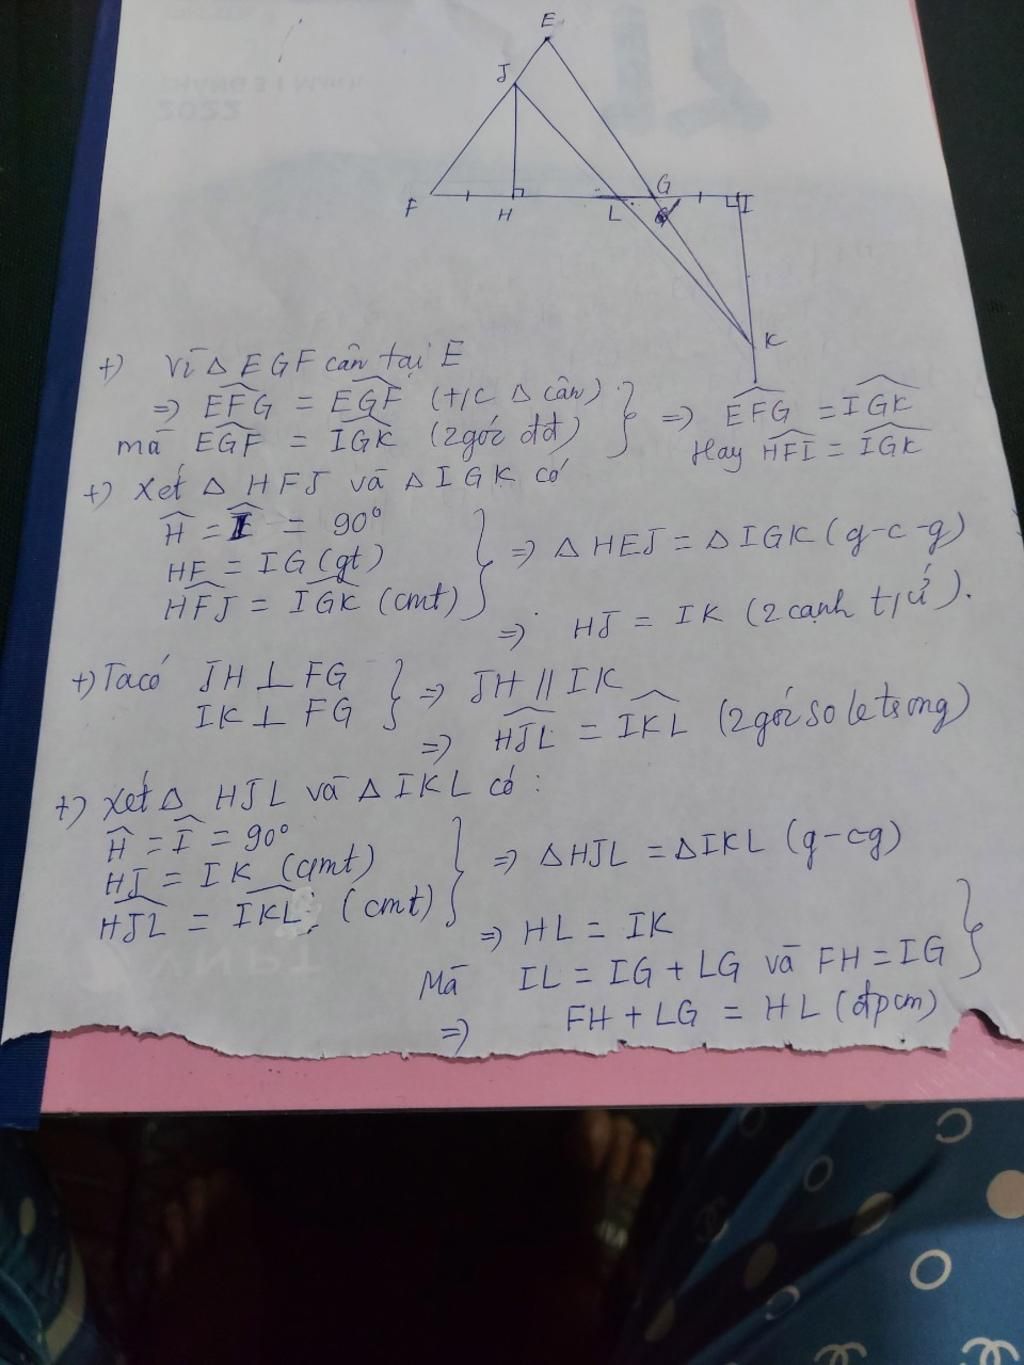 E
J
F H L G I
K
+) Vì Δ EGF cân tại E
⇒ EFG = EGF (t/c Δ cân)
mà EGF = IGK (2 góc đđ)
⇒ EFG = IGK
Hay HFI = IGK
+) Xét Δ HFJ và Δ IGK có
H = I = 90°
HF = IG (gt)
HFJ = IGK (cmt)
⇒ Δ HEJ = Δ IGK (g-c-g)
⇒ HJ = IK (2 cạnh t/ứ).
+) Ta có JH ⊥ FG
IK ⊥ FG
⇒ JH // IK
⇒ HJL = IKL (2 góc so le trong)
+) Xét Δ HJL và Δ IKL có:
H = I = 90°
HJ = IK (cmt)
HJL = IKL (cmt)
⇒ ΔHJL = ΔIKL (g-cg)
⇒ HL = IK
Mà IL = IG + LG và FH = IG
⇒ FH + LG = HL (đpcm)
VNPT
2022